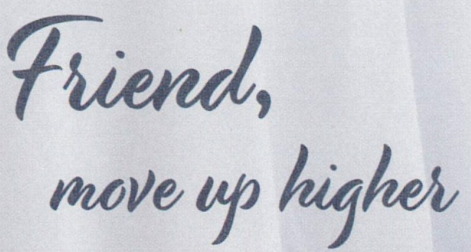 Friend,
move up higher